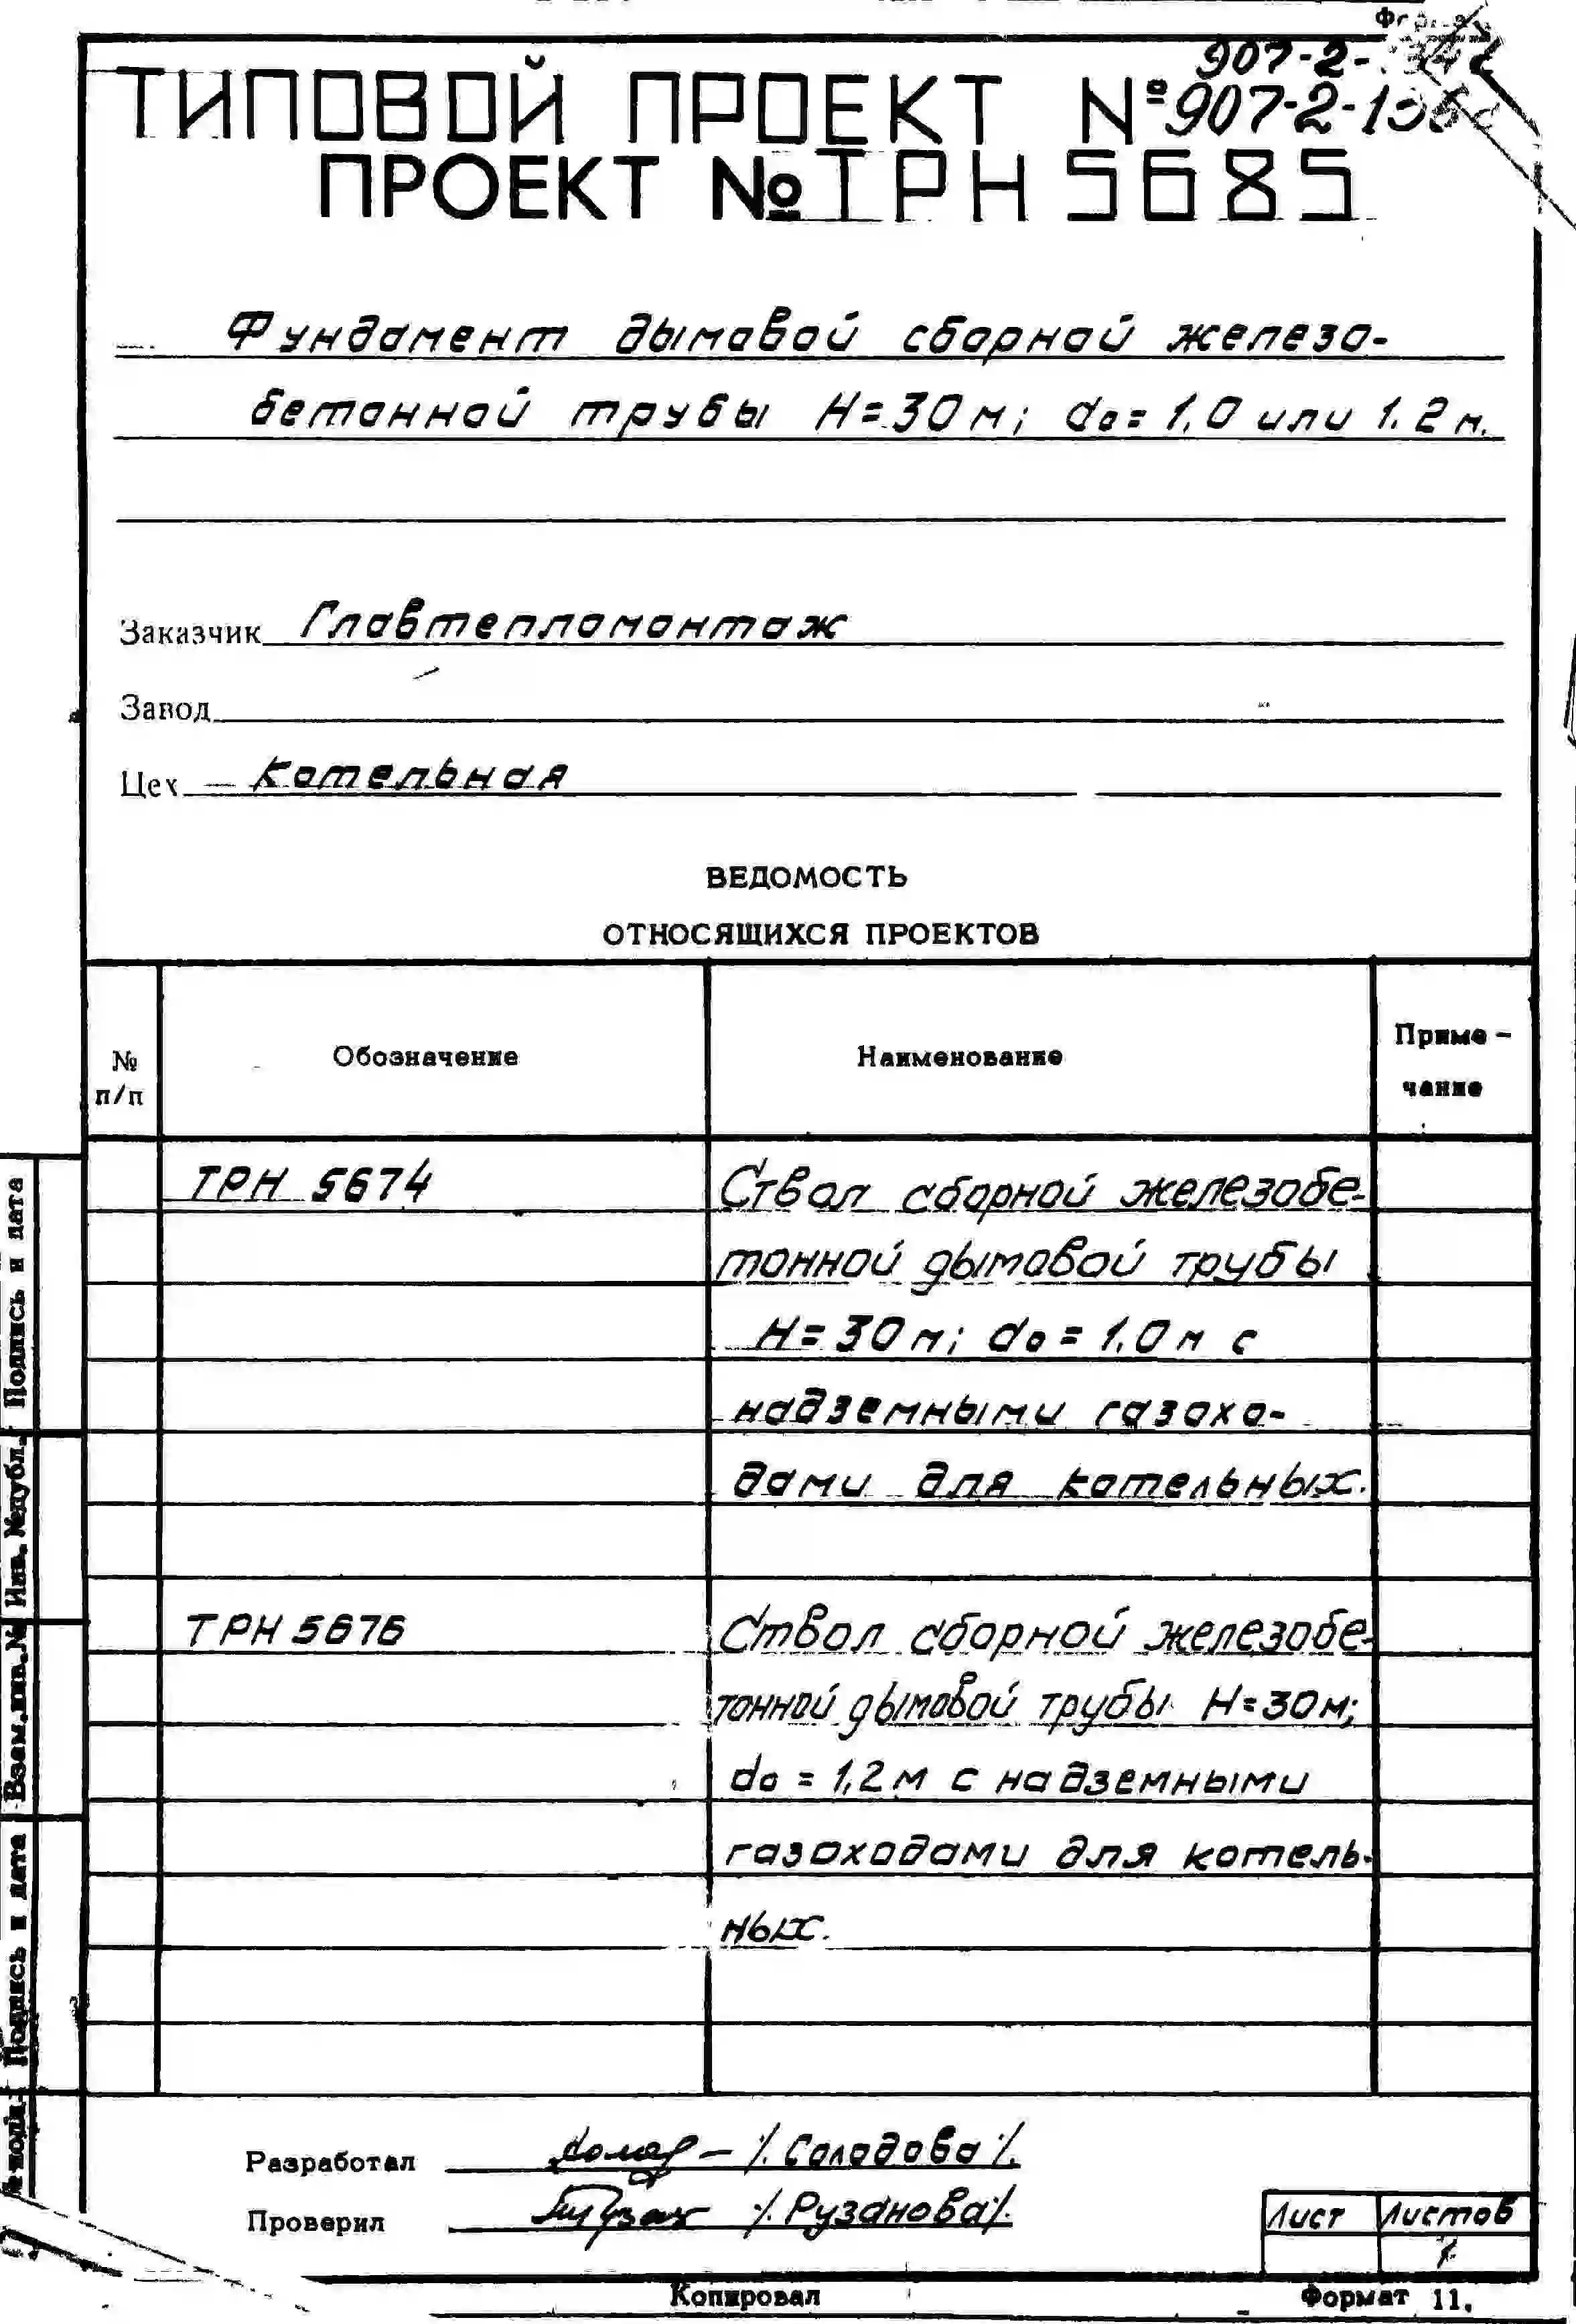 907-2-
ТИПОВОЙ ПРОЕКТ №907-2-
ПРОЕКТ № ТРН 5685
Фундамент дымовой сборной железо-
бетонной трубы Н=30м; do=1,0 или 1.2м.
Заказчик Главтепломонтаж
Завод
Цех Котельная
ВЕДОМОСТЬ
ОТНОСЯЩИХСЯ ПРОЕКТОВ
№ п/п
Обозначение
Наименование
Приме-
чание
ТРН 5674
Ствол сборной железобе-
тонной дымовой трубы
Н=30м; do=1,0м с
надземными газохо-
дами для котельных.
ТРН 5676
Ствол сборной железобе-
тонной дымовой трубы Н=30м;
do=1,2м с надземными
газоходами для котель-
ных.
Подпись и дата
Инв. №дубл.
Взам.инв.№
Подпись и дата
Разработал /.Солодова/.
Проверил /.Рузанова/.
Лист Листов
Копировал
Формат 11.